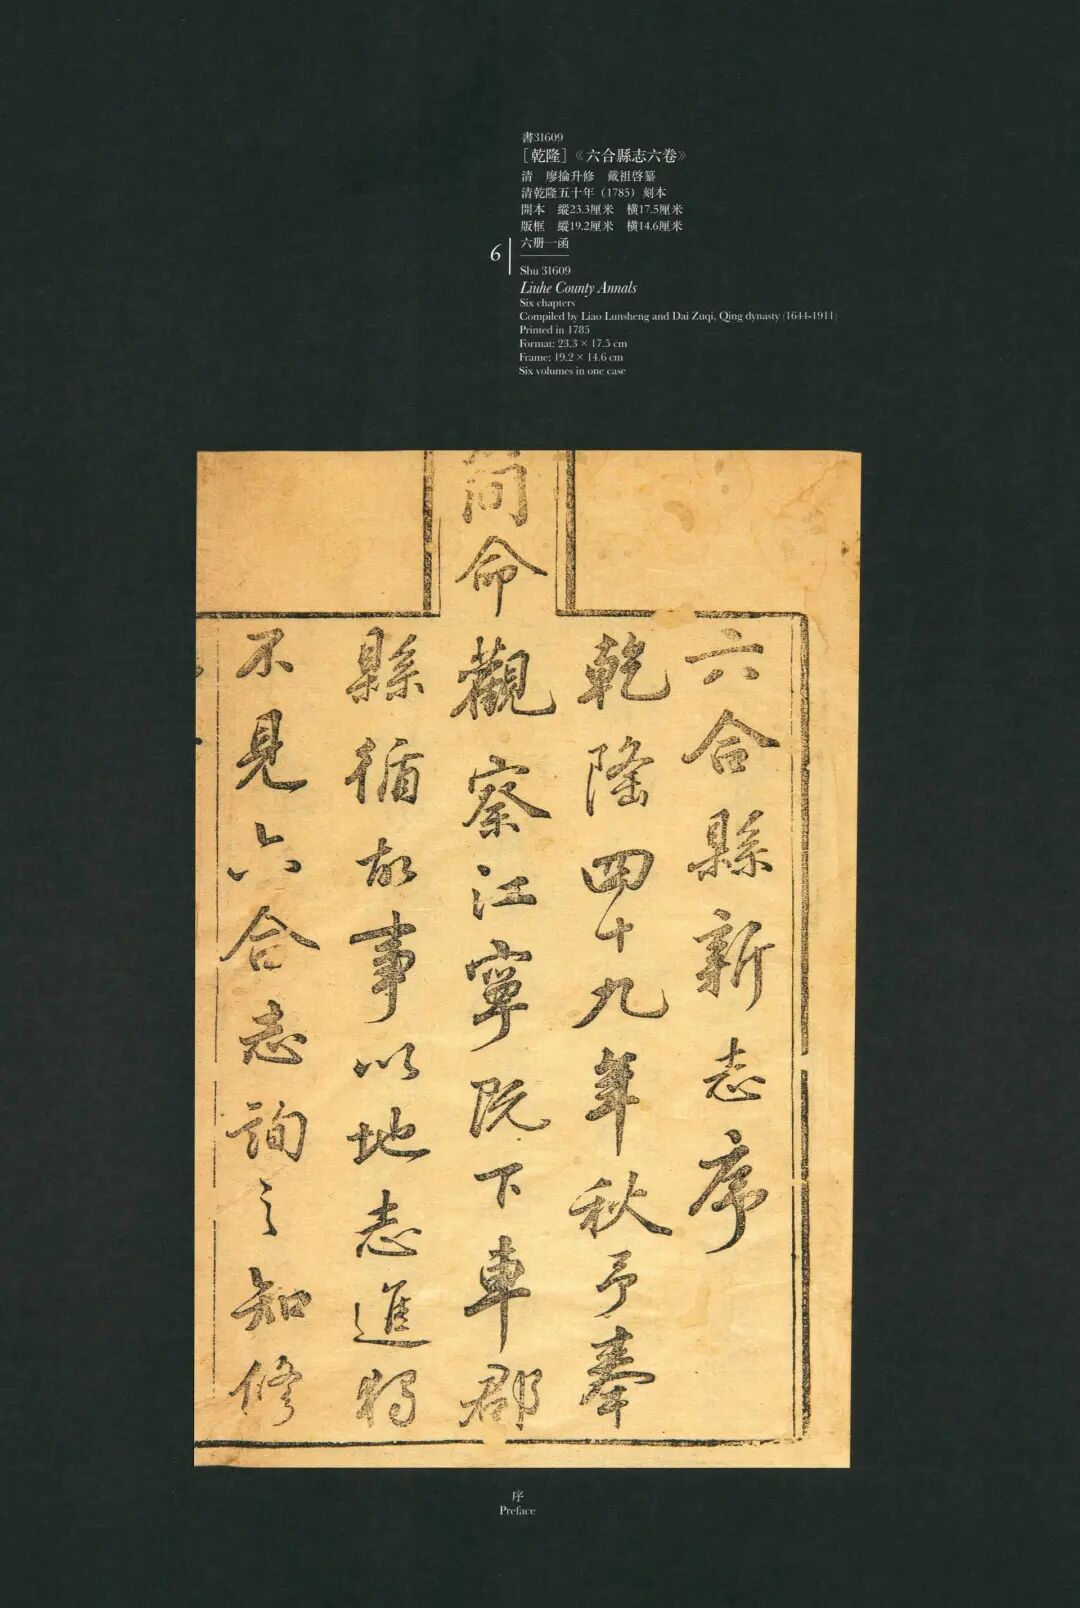 書31609
[乾隆]《六合縣志六卷》
清 廖掄升修 戴祖啓纂
清乾隆五十年（1785）刻本
開本 縱23.3厘米 橫17.5厘米
版框 縱19.2厘米 橫14.6厘米
六册一函
6
Shu 31609
Liuhe County Annals
Six chapters
Compiled by Liao Lunsheng and Dai Zuqi, Qing dynasty (1644-1911)
Printed in 1785
Format: 23.3 × 17.5 cm
Frame: 19.2 × 14.6 cm
Six volumes in one case
六合縣新志序
乾隆四十九年秋予奉
簡命觀察江寧既下車郡
縣循故事以地志進獨
不見六合志詢之知修
序
Preface